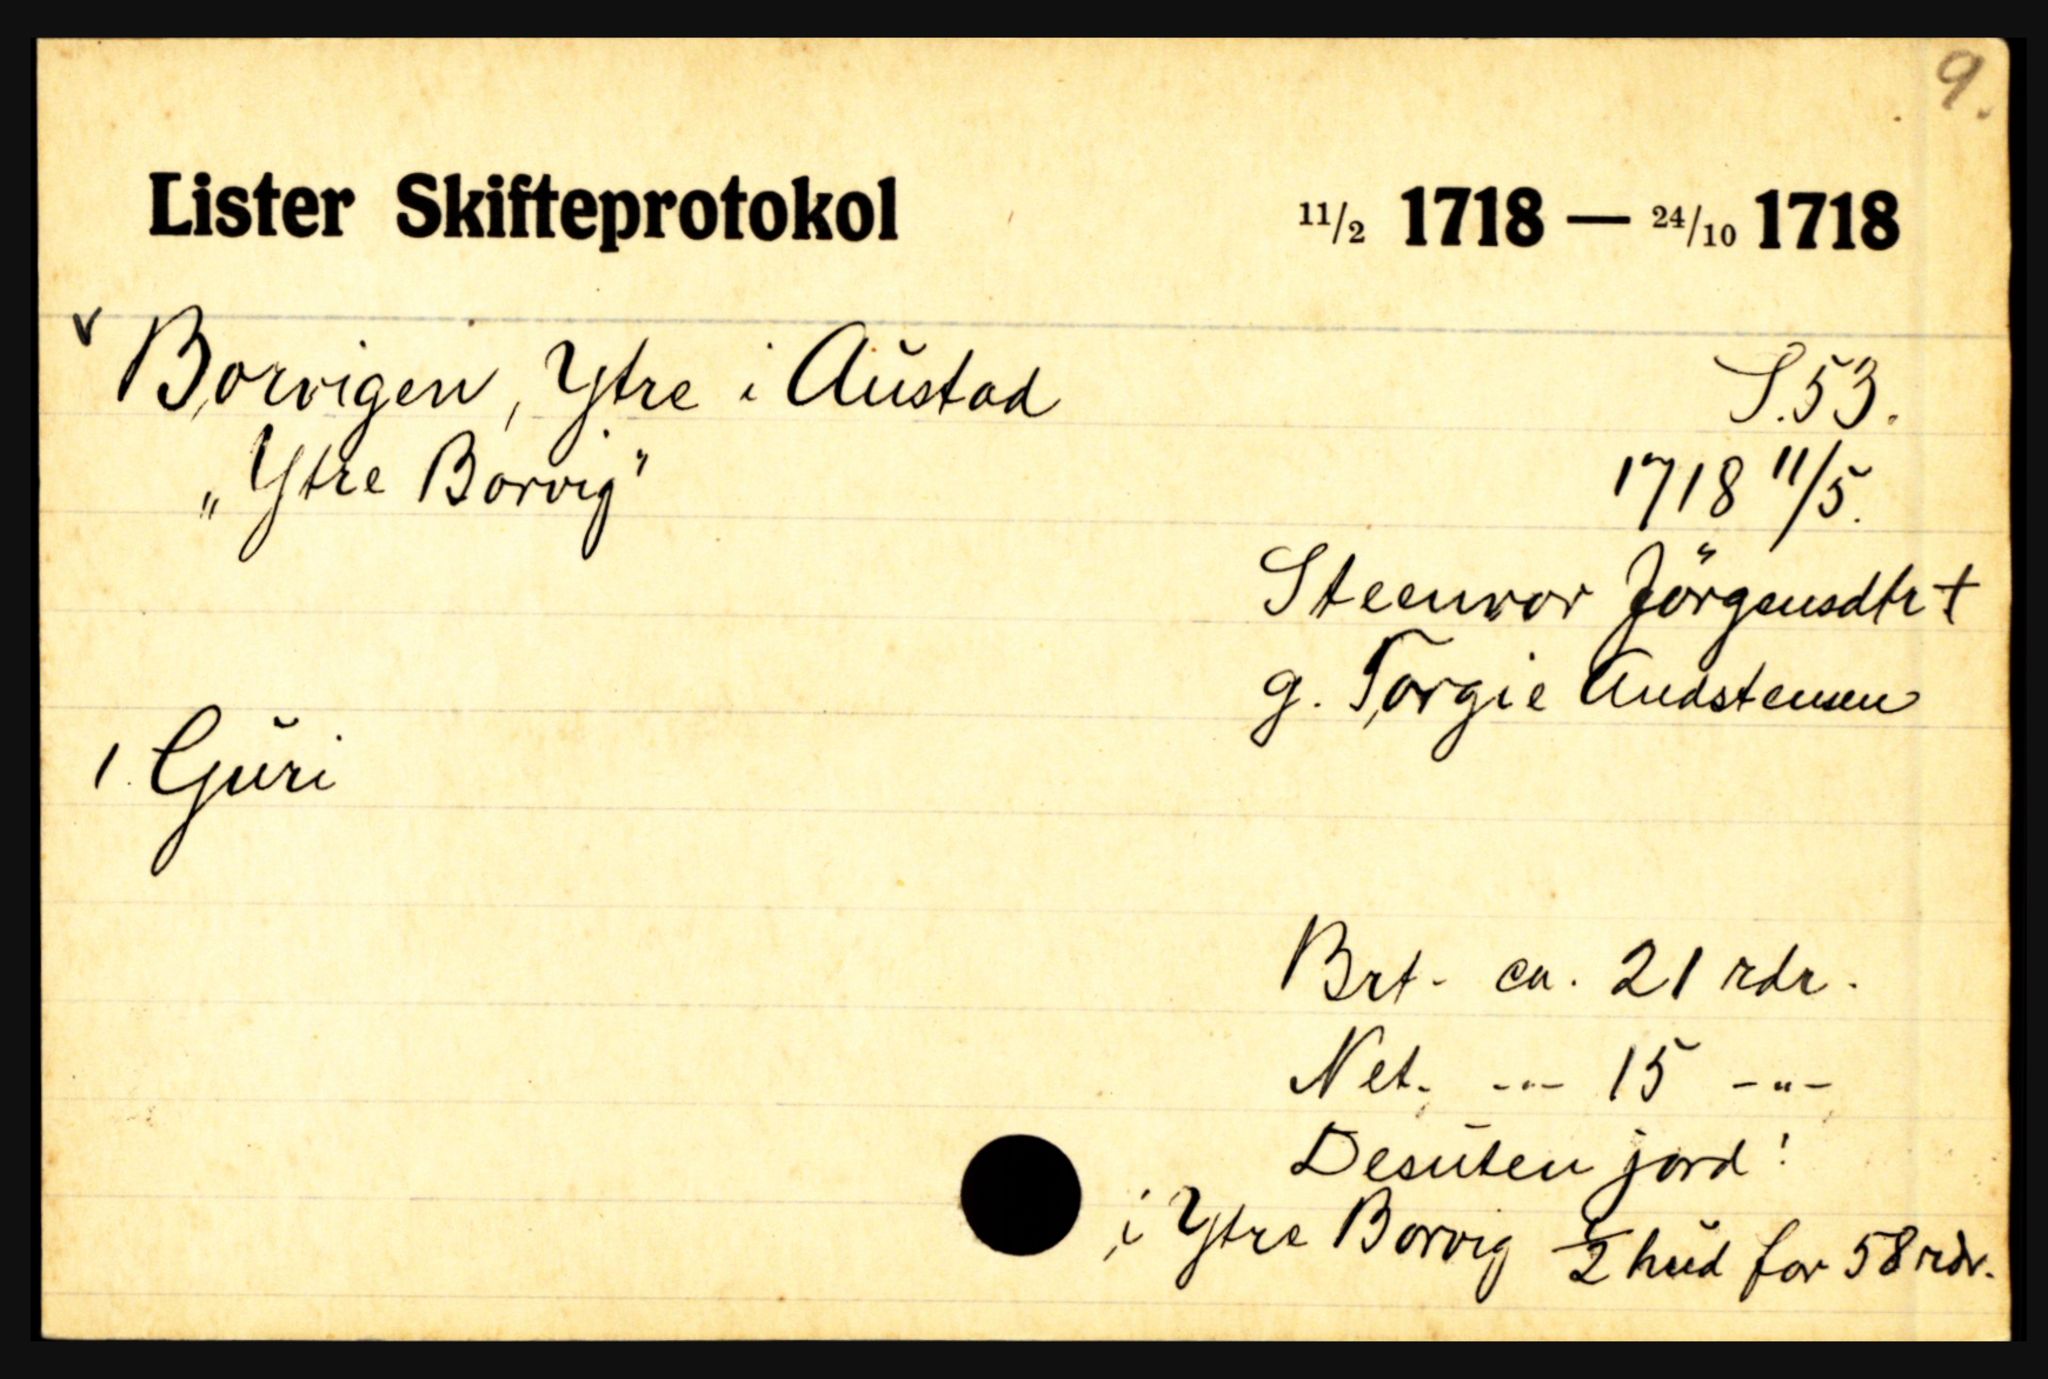 9.
Lister Skifteprotokol 11/2 1718 — 24/10 1718
v Borvigen, Ytre i Austad S. 53.
„Ytre Borvig" 1718 11/5.
Steenvor Jörgensdtr †
g. Torgie Andstensen
1. Guri
Brt. ca. 21 rdr.
Net. -"- 15 -"-
Desuten jord:
i Ytre Borvig 1/2 hud for 58 rdr.